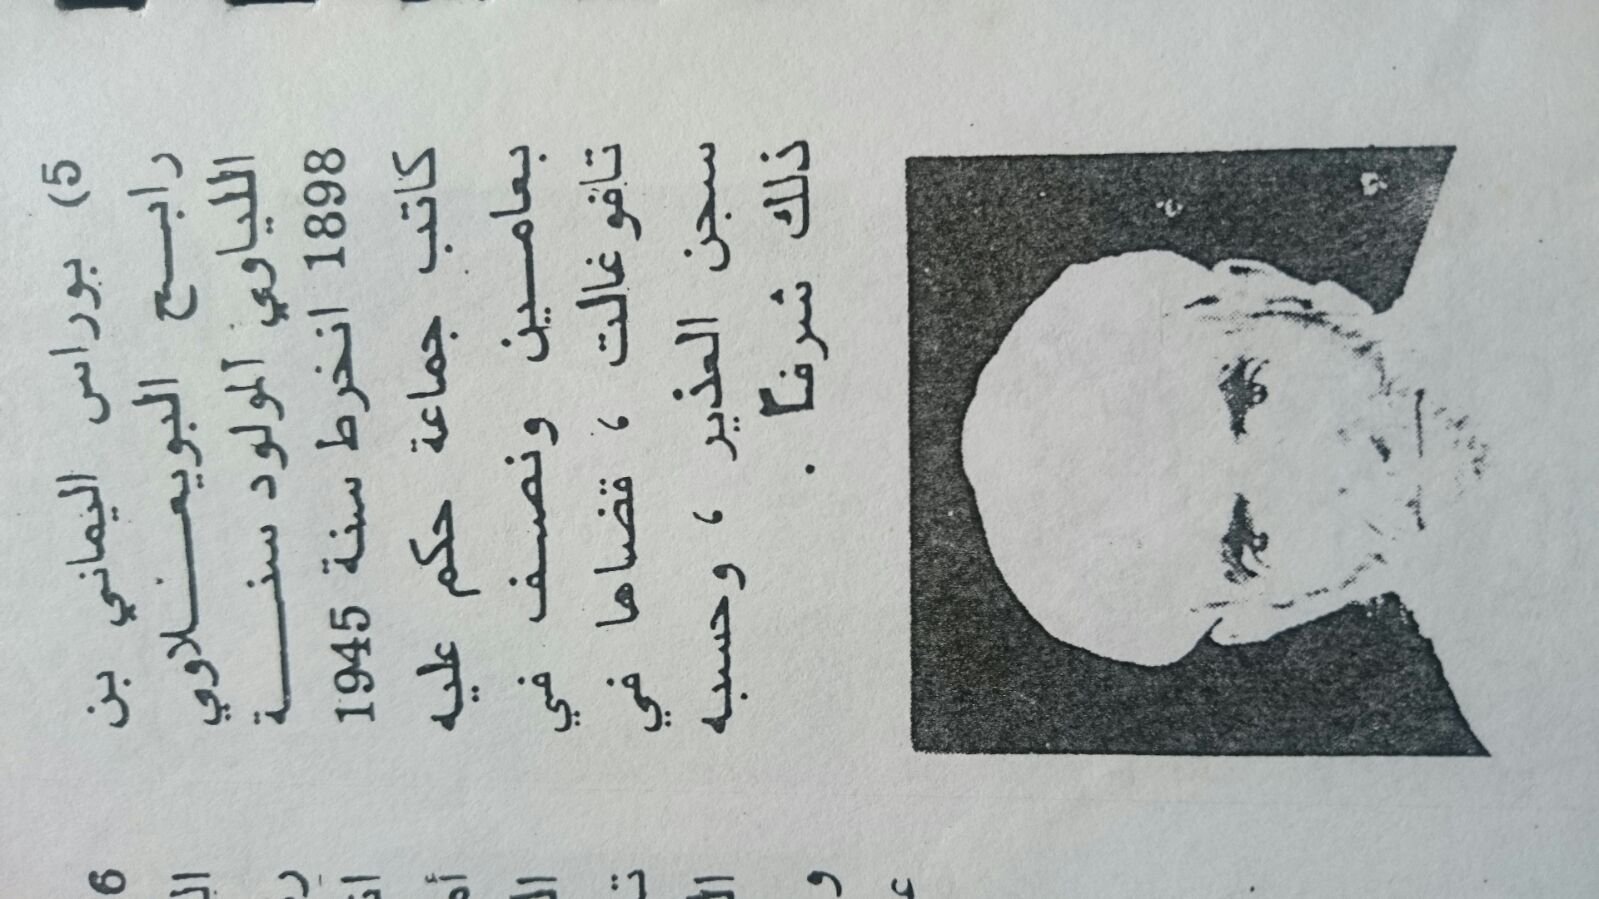 5) بوراس اليماني بن
رابـــح البويعـــلاوي
اللياوي المولود سنـــة
1898 انخرط سنة 1945
كاتب جماعة حكم عليه
بعامـــين ونصـف في
تافوغالت ، قضاها في
سجن العذير ، وحسبه
ذلك شرفاً .
6